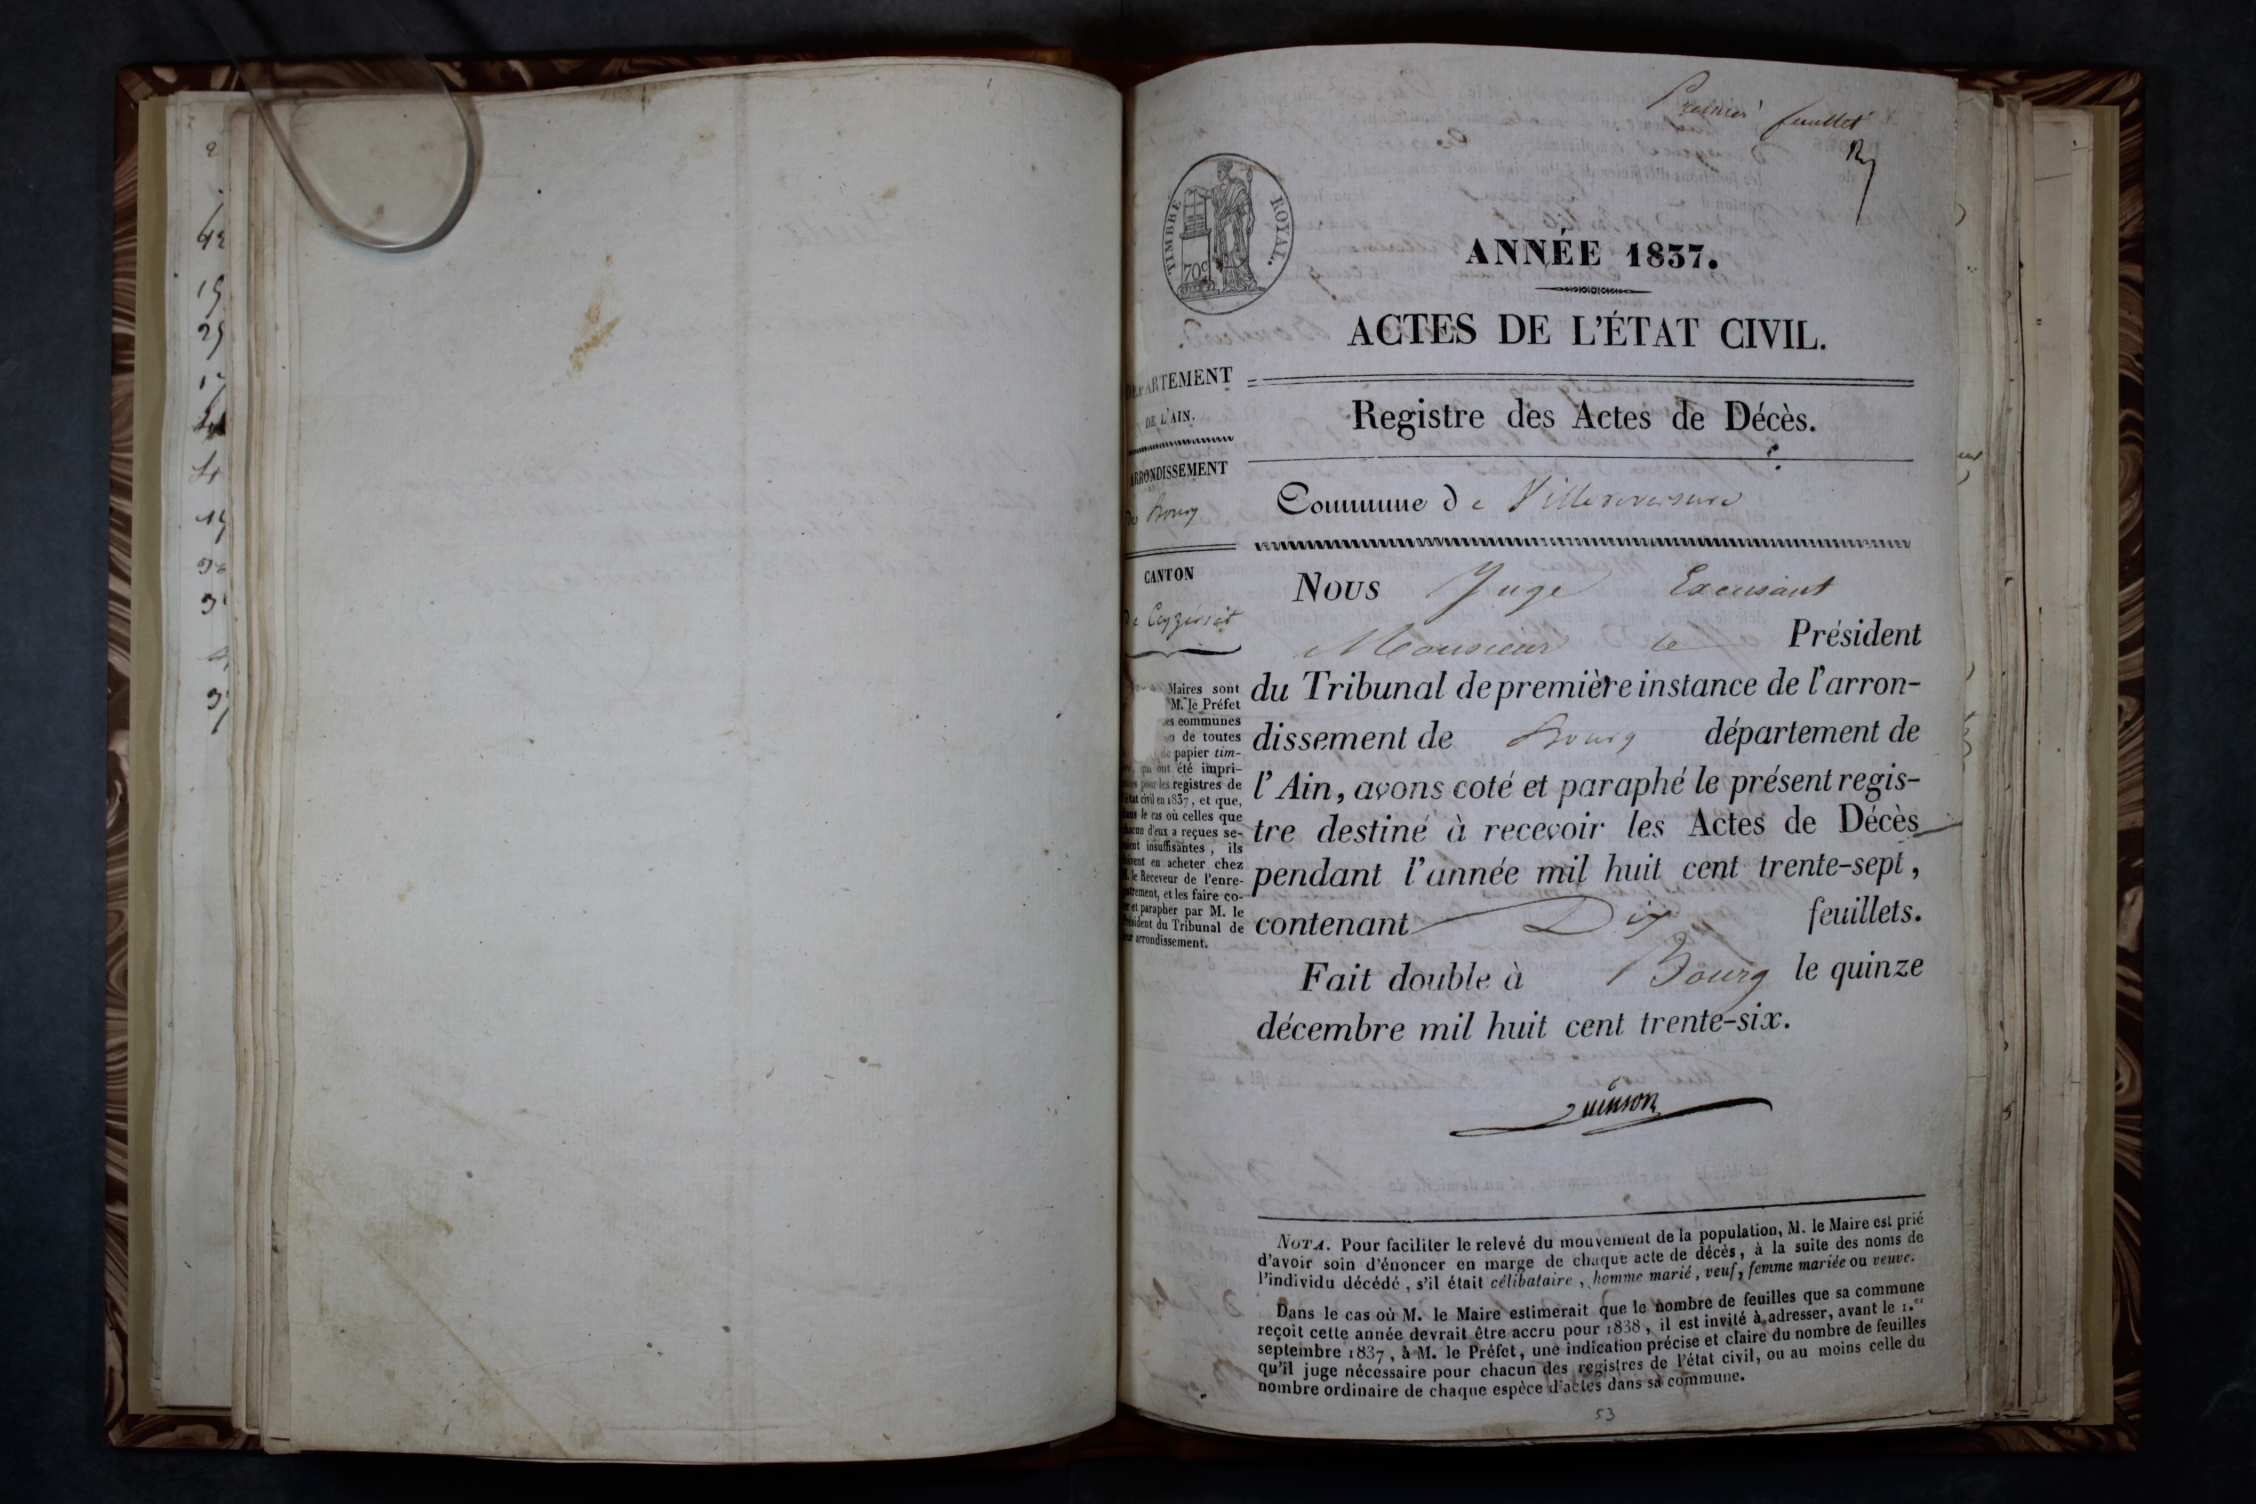 Premier feuillet
TIMBRE ROYAL.
70c
ANNÉE 1837.
ACTES DE L'ÉTAT CIVIL.
DÉPARTEMENT
DE L'AIN.
ARRONDISSEMENT
de Bourg
CANTON
de Ceyzériat
Maires sont
M. le Préfet
es communes
de toutes
de papier tim-
qui ont été impri-
pour les registres de
l'état civil en 1837, et que,
dans le cas où celles que
chacun d'eux a reçues se-
raient insuffisantes, ils
doivent en acheter chez
M. le Receveur de l'enre-
gistrement, et les faire co-
ter et parapher par M. le
Président du Tribunal de
leur arrondissement.
Registre des Actes de Décès.
Commune de Villereversure
Nous Juge Excusant
Monsieur le Président
du Tribunal de première instance de l'arron-
dissement de Bourg département de
l'Ain, avons coté et paraphé le présent regis-
tre destiné à recevoir les Actes de Décès
pendant l'année mil huit cent trente-sept,
contenant Dix feuillets.
Fait double à Bourg le quinze
décembre mil huit cent trente-six.
Quinson
NOTA. Pour faciliter le relevé du mouvement de la population, M. le Maire est prié
d'avoir soin d'énoncer en marge de chaque acte de décès, à la suite des noms de
l'individu décédé, s'il était célibataire, homme marié, veuf, femme mariée ou veuve.
Dans le cas où M. le Maire estimerait que le nombre de feuilles que sa commune
reçoit cette année devrait être accru pour 1838, il est invité à adresser, avant le 1.er
septembre 1837, à M. le Préfet, une indication précise et claire du nombre de feuilles
qu'il juge nécessaire pour chacun des registres de l'état civil, ou au moins celle du
nombre ordinaire de chaque espèce d'actes dans sa commune.
53